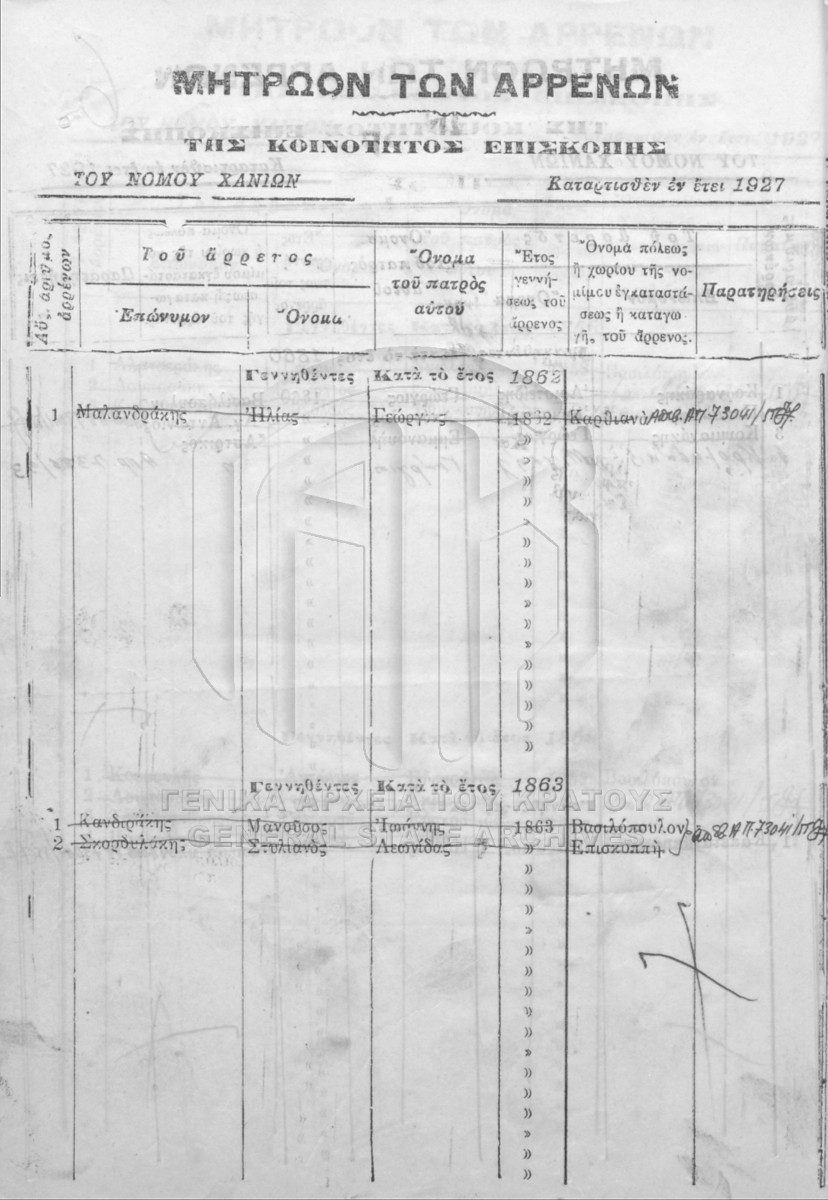 ΜΗΤΡΩΟΝ ΤΩΝ ΑΡΡΕΝΩΝ
ΤΗΣ ΚΟΙΝΟΤΗΤΟΣ ΕΠΙΣΚΟΠΗΣ
ΤΟΥ ΝΟΜΟΥ ΧΑΝΙΩΝ Καταρτισθὲν ἐν ἔτει 1927
Αὔξ. ἀριθμο.
ἀρρένων
Τοῦ ἄρρενος
Ἐπώνυμον
Ὄνομα
Ὄνομα
τοῦ πατρὸς
αὐτοῦ
Ἔτος
γεννή-
σεως τοῦ
ἄρρενος
Ὄνομα πόλεως
ἢ χωρίου τῆς νο-
μίμου ἐγκαταστά-
σεως ἢ καταγω
γῆ, τοῦ ἄρρενος.
Παρατηρήσεις
Γεννηθέντες Κατὰ τὸ ἔτος 1862
1 Μαλανδράκης Ἠλίας Γεώργιος 1862 Καρθιανὰ ΑΠ 73041/
Γεννηθέντες Κατὰ τὸ ἔτος 1863
ΓΕΝΙΚΑ ΑΡΧΕΙΑ ΤΟΥ ΚΡΑΤΟΥΣ
1 Κανδιράκης Μανοῦσος Ἰωάννης 1863 Βασιλόπουλον ΑΠ 73041/
GENERAL STATE ARCHIVES
2 Σκορδυλάκης Στυλιανὸς Λεωνίδας » Ἐπισκοπὴ